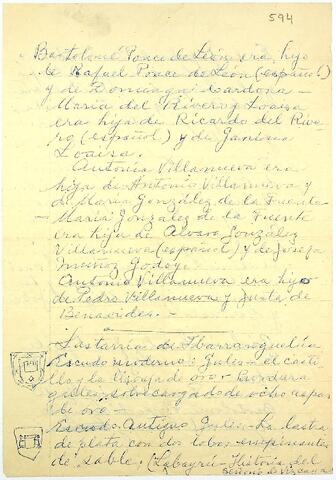 594
Bartolomé Ponce de León era hijo
de Rafael Ponce de León (español)
y de Dominga Cardona —
María del Rivero y Loaisa
era hija de Ricardo del Rive
ro (español) y de
Loaisa.
Antonia Villanueva era
hija de Antonio Villanueva y
de María González de la Fuente
— María González de la Fuente
era hija de Alvaro González
Villanueva (español) y de Josefa
Muñoz Godoy.
Antonio Villanueva era hijo
de Pedro Villanueva y Justa de
Benavides. —
Lastarria de Ibarranguelua
Escudo moderno: Gules — el casti
llo y la de oro — Bordura
gules, sobrecargado de ocho aspas
de oro —
Escudo Antiguo Gules — La lastra
de plata con dos lobos empinantes
de sable. (Labayru — Historia del
Señorío de Vizcaya